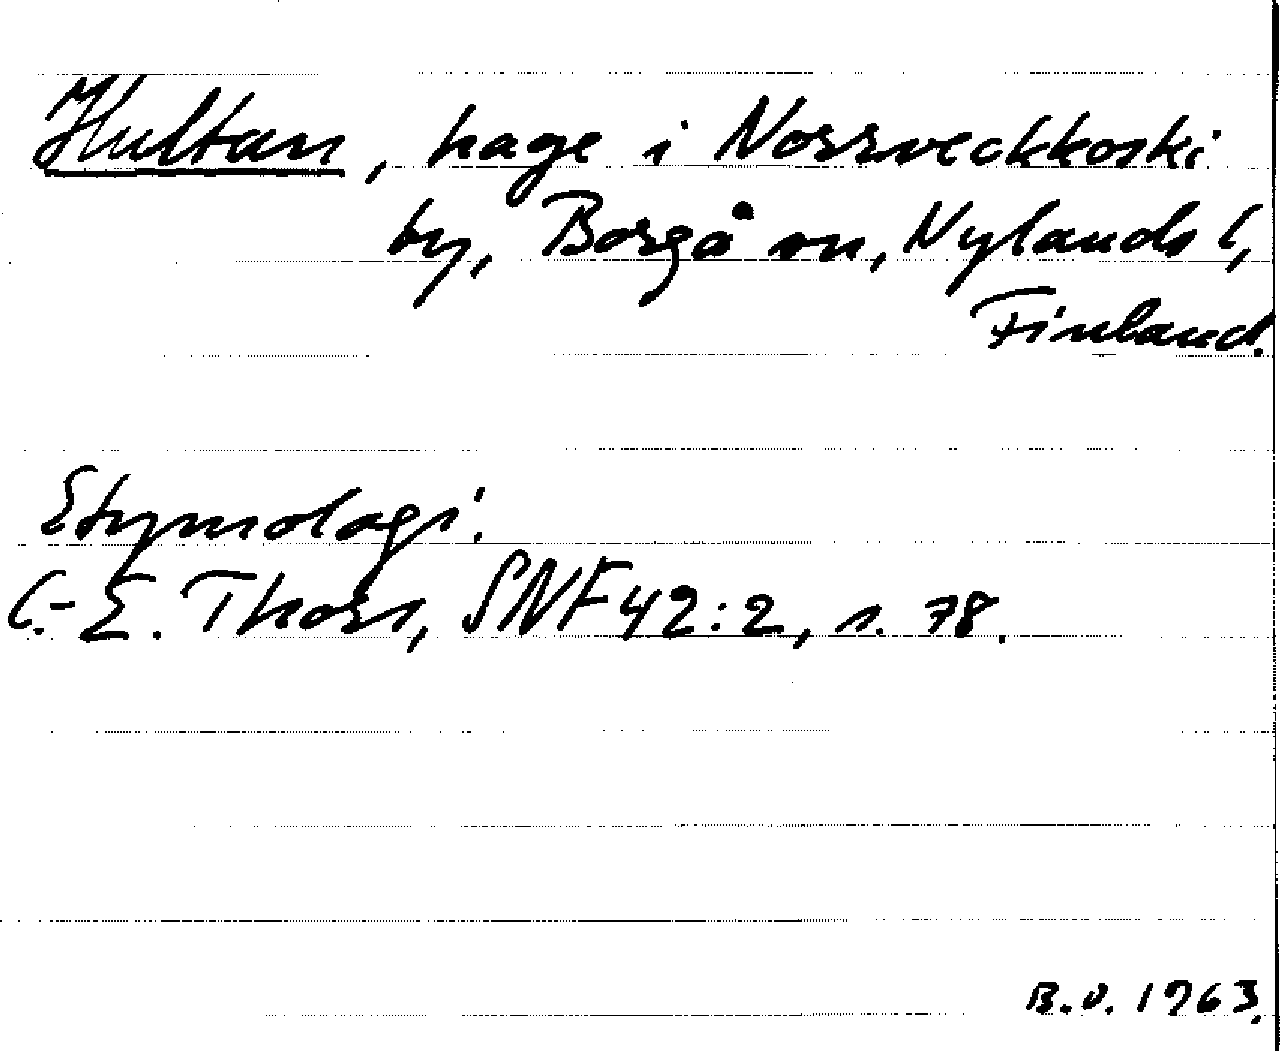 Hultan, hage i Norrveckkoski
by, Borgå sn, Nylands l,
Finland.
Etymologi:
C.-E. Thors, SNF 42:2, s. 78.
B.O. 1963.